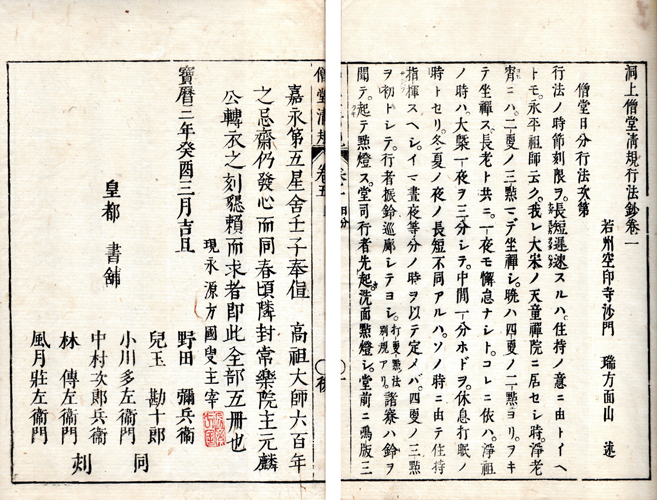 洞上僧堂清規行法鈔卷一
若州空印寺沙門 瑞方面山 述
僧堂日分行法次第
行法ノ時節刻限ヲ。長短遲速スルハ。住持ノ意ニ由トイヘ
トモ。永平祖師云ク。我レ大宋ノ天童禪院ニ居セシ時。淨老
宵ニハ。二更ノ三點マデ坐禪シ。曉ハ四更ノ二點ヨリ。ヲキ
テ坐禪ス。長老ト共ニ。一夜モ懈怠ナシト。コレニ依ハ。淨祖
ノ時ハ大槩一夜ヲ三分シテ。中間一分ホドヲ。休息打眠ノ
時トセリ。冬夏ノ夜ノ長短不同アルハ。ソノ時ニ由テ住持
指揮スヘシ。イマ晝夜等分ノ時ヲ以テ定メバ。四更ノ三點
ヲ初トシテ。行者振鈴巡廊シテヨシ。打更點法別規アリ。諸寮ハ鈴ヲ
聞テ。起テ點燈ス。堂司行者先起。洗面點燈シ。堂前ニ鳴版三
僧堂清規 卷五
嘉永第五星舍壬子奉值 高祖大師六百年
之忌齋仍發心而同春頃隣封常樂院主元麟
公轉衣之刻懇賴而求者即此全部五冊也
現永源方國叟主宰
寶曆三年癸酉三月吉旦
皇都 書舖
野田 彌兵衛
兒玉 勘十郎
小川多左衛門
中村次郎兵衛
林 傳左衛門
風月莊左衛門
同
刻